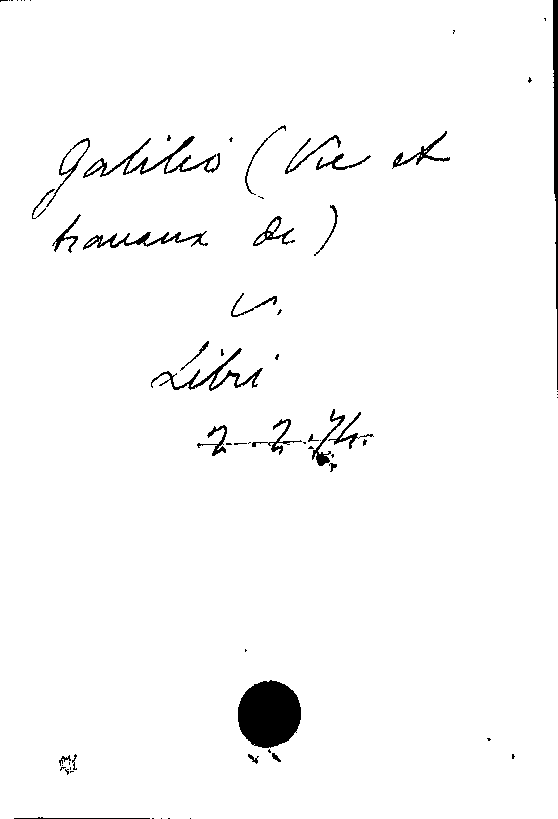 Galileo (Vie et
travaux de)
v.
Libri
2.2.74.